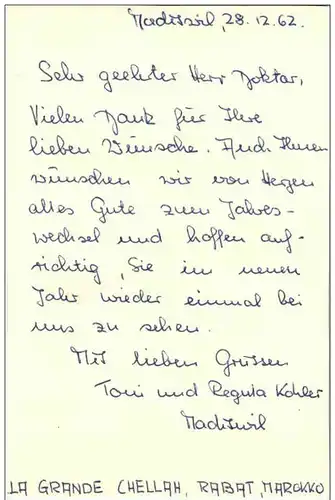 Madiswil, 28.12.62.
Sehr geehrter Herr Doktor,
Vielen Dank für Ihre
lieben Wünsche. Auch Ihnen
wünschen wir von Herzen
alles Gute zum Jahres-
wechsel und hoffen auf-
richtig, Sie im neuen
Jahr wieder einmal bei
uns zu sehen.
Mit lieben Grüssen
Toni und Regula Kohler
Madiswil
LA GRANDE CHELLAH, RABAT, MAROKKO